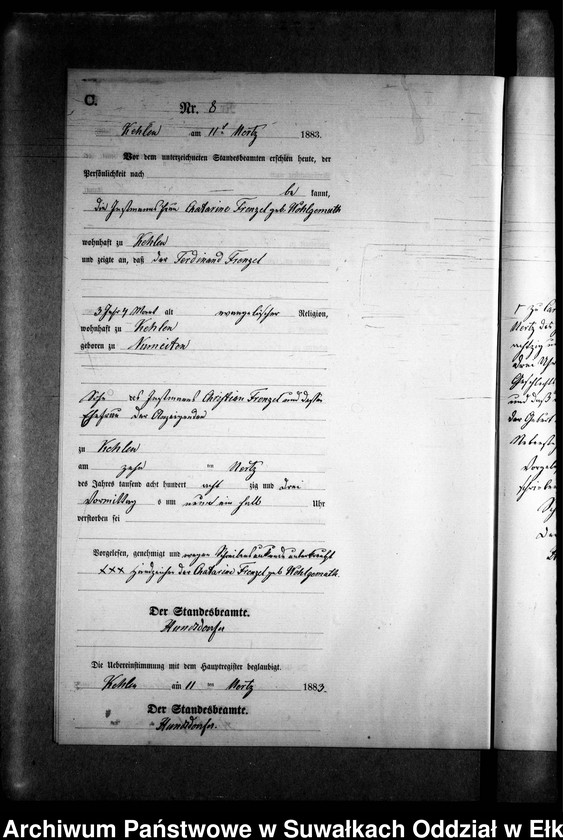 C.
Nr. 8
Kehlen am 11t März 1883.
Vor dem unterzeichneten Standesbeamten erschien heute, der
Persönlichkeit nach
be kannt,
die Instmannsfrau Chatarine Frenzel geb. Wohlgemuth
wohnhaft zu Kehlen
und zeigte an, daß der Ferdinand Frenzel
3 Jahr 4 Monat alt evangelischer Religion,
wohnhaft zu Kehlen
geboren zu
Sohn des Instmanns Christian Frenzel und dessen
Ehefrau der Anzeigenden
zu Kehlen
am zehn ten März
des Jahres tausend acht hundert acht zig und drei
Vormittag s um neun ein halb Uhr
verstorben sei
Vorgelesen, genehmigt und wegen Schreibensunkunde unterkreuzt
XXX Handzeichen der Chatarine Frenzel geb. Wohlgemuth.
Der Standesbeamte.
Die Uebereinstimmung mit dem Hauptregister beglaubigt.
Kehlen am 11 ten März 1883.
Der Standesbeamte.
März des
achtzig und
drei Uhr
Geschlechts
und daß
der Geburt
Vorgele
schrieben
Archiwum Państwowe w Suwałkach Oddział w Ełk